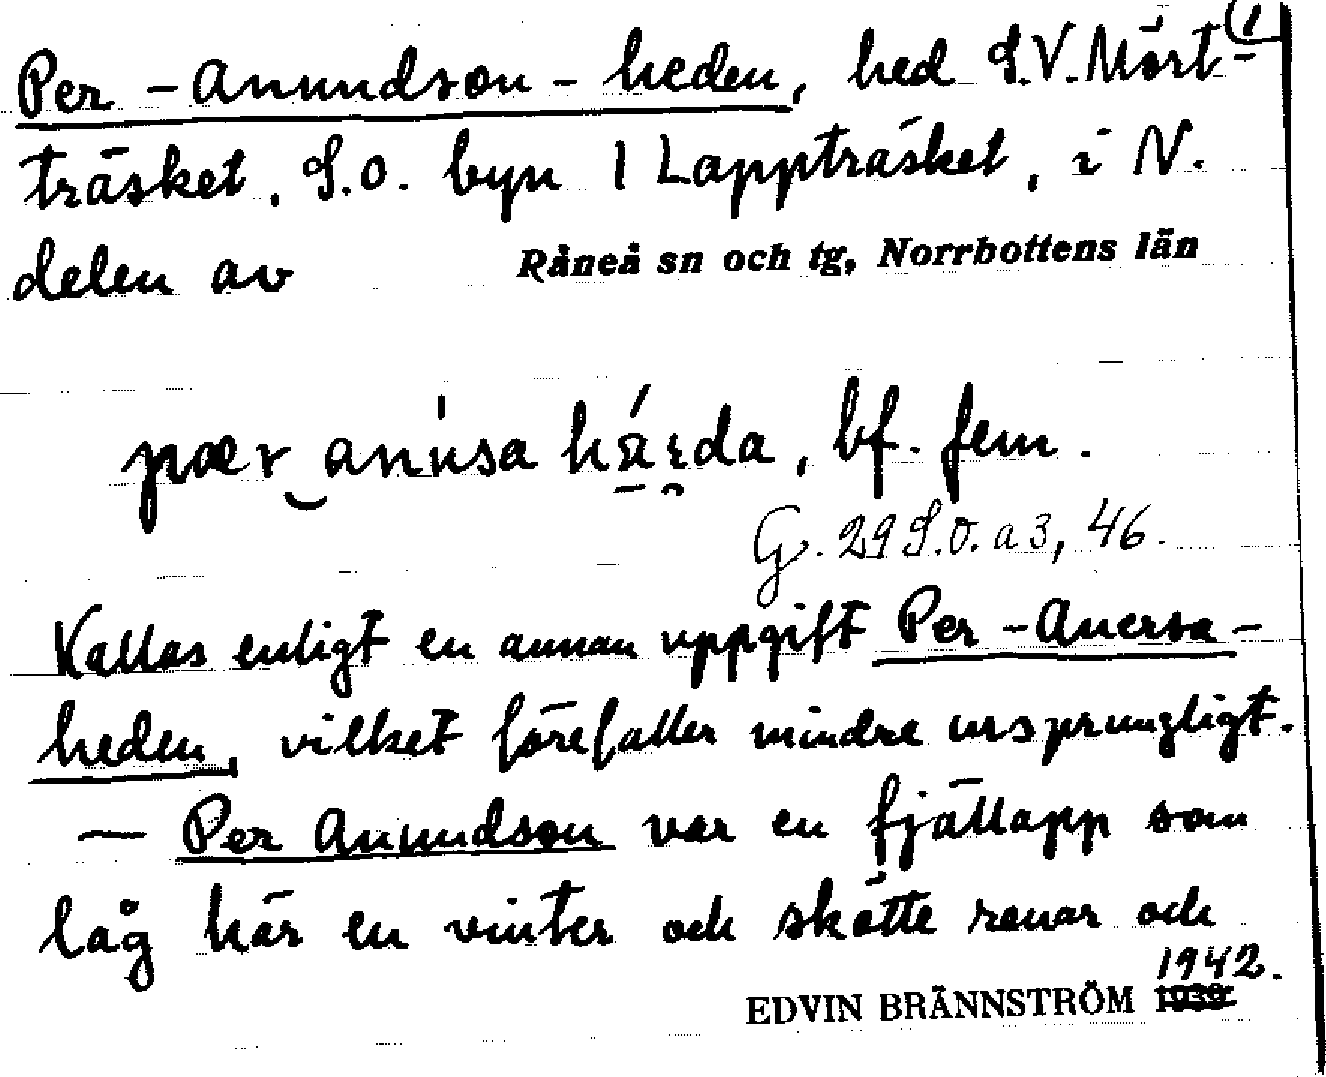 1
Per-Anundson-heden, hed S.V. Mört-
träsket, S.O. byn 1 Lappträsket, i N.
delen av Råneå sn och tg, Norrbottens län
bf. fem.
G. 29 S.O. a 3, 46.
Kallas enligt en annan uppgift Per-Anersa-
heden, vilket förefaller mindre ursprungligt.
— Per Anundson var en fjällapp som
låg här en vinter och skötte renar och
1942.
EDVIN BRÄNNSTRÖM 1939